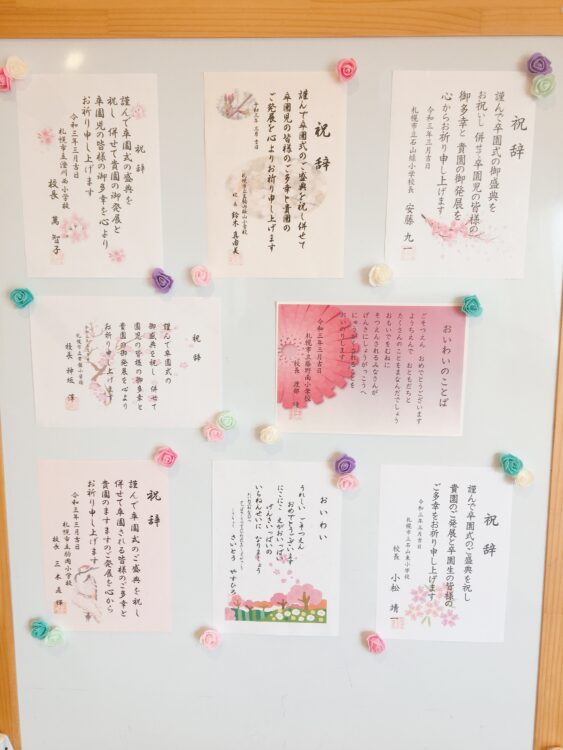 祝辞
謹んで卒園式の盛典を
祝し 併せて貴園の御発展と
卒園児の皆様の御多幸を心より
お祈り申し上げます
令和三年三月吉日
札幌市立澄川西小学校
校長
祝辞
謹んで卒園式のご盛典を祝し併せて
卒園児の皆様のご多幸と貴園の
ご発展を心よりお祈り申し上げます
令和三年三月吉日
校長 鈴木真由美
祝辞
謹んで卒園式の御盛典を
お祝いし 併せて卒園児の皆様の
御多幸と 貴園の御発展を
心からお祈り申し上げます
令和三年三月吉日
札幌市立石山緑小学校長 安藤九一
祝辞
謹んで卒園式の
御盛典を祝し、併せて
卒園児の皆様の御多幸と
貴園の御発展を心より
お祈り申し上げます
校長 神坂 淳
おいわいのことば
ごそつえん おめでとうございます
ようちえんで おともだちと
たくさんのことをまなんだでしょう
おもいでをむねに
そつえんされるみなさんが
げんきにしょうがっこうへ
にゅうがくされることを
おいのりします
令和三年三月吉日
札幌市立藤野南小学校
校長 渡部
祝辞
謹んで卒園式のご盛典を祝し
併せて卒園される皆様のご多幸と
貴園のますますのご発展を心から
お祈り申し上げます
令和三年三月吉日
札幌市立駒岡小学校
校長 三木 直輝
おいわい
うれしい ごそつえん
おめでとうございます
にこにこ えがおいっぱい
げんきいっぱいの
いちねんせいに なりましょう
さいとう やすひろ
祝辞
謹んで卒園式のご盛典を祝し
貴園のご発展と卒園生の皆様の
ご多幸をお祈り申し上げます
令和三年三月吉日
札幌市立石山東小学校
校長 小松 靖一